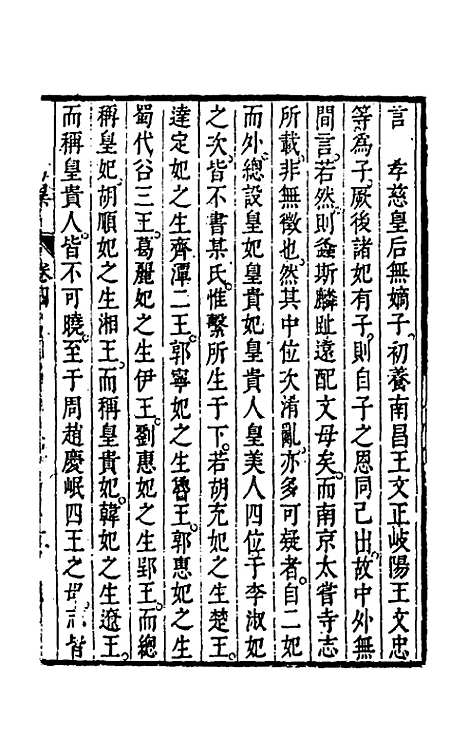 言　孝慈皇后無嫡子。初養南昌王文正岐陽王文忠
等為子。厥後諸妃有子。則自子之恩同己出。故中外無
間言。若然。則螽斯麟趾遠配文母矣。而南京太嘗寺志
所載。非無徵也。然其中位次淆亂。亦多可疑者。自二妃
而外。總設皇妃皇貴妃皇貴人皇美人四位于李淑妃
之次。皆不書某氏。惟繫所生于下。若胡充妃之生楚王。
達定妃之生齊潭二王。郭寧妃之生魯王。郭惠妃之生
蜀代谷三王。葛麗妃之生伊王。劉惠妃之生郢王。而總
稱皇妃。胡順妃之生湘王。而稱皇貴妃。韓妃之生遼王。
而稱皇貴人。皆不可曉。至于周趙慶岷四王之母。志皆